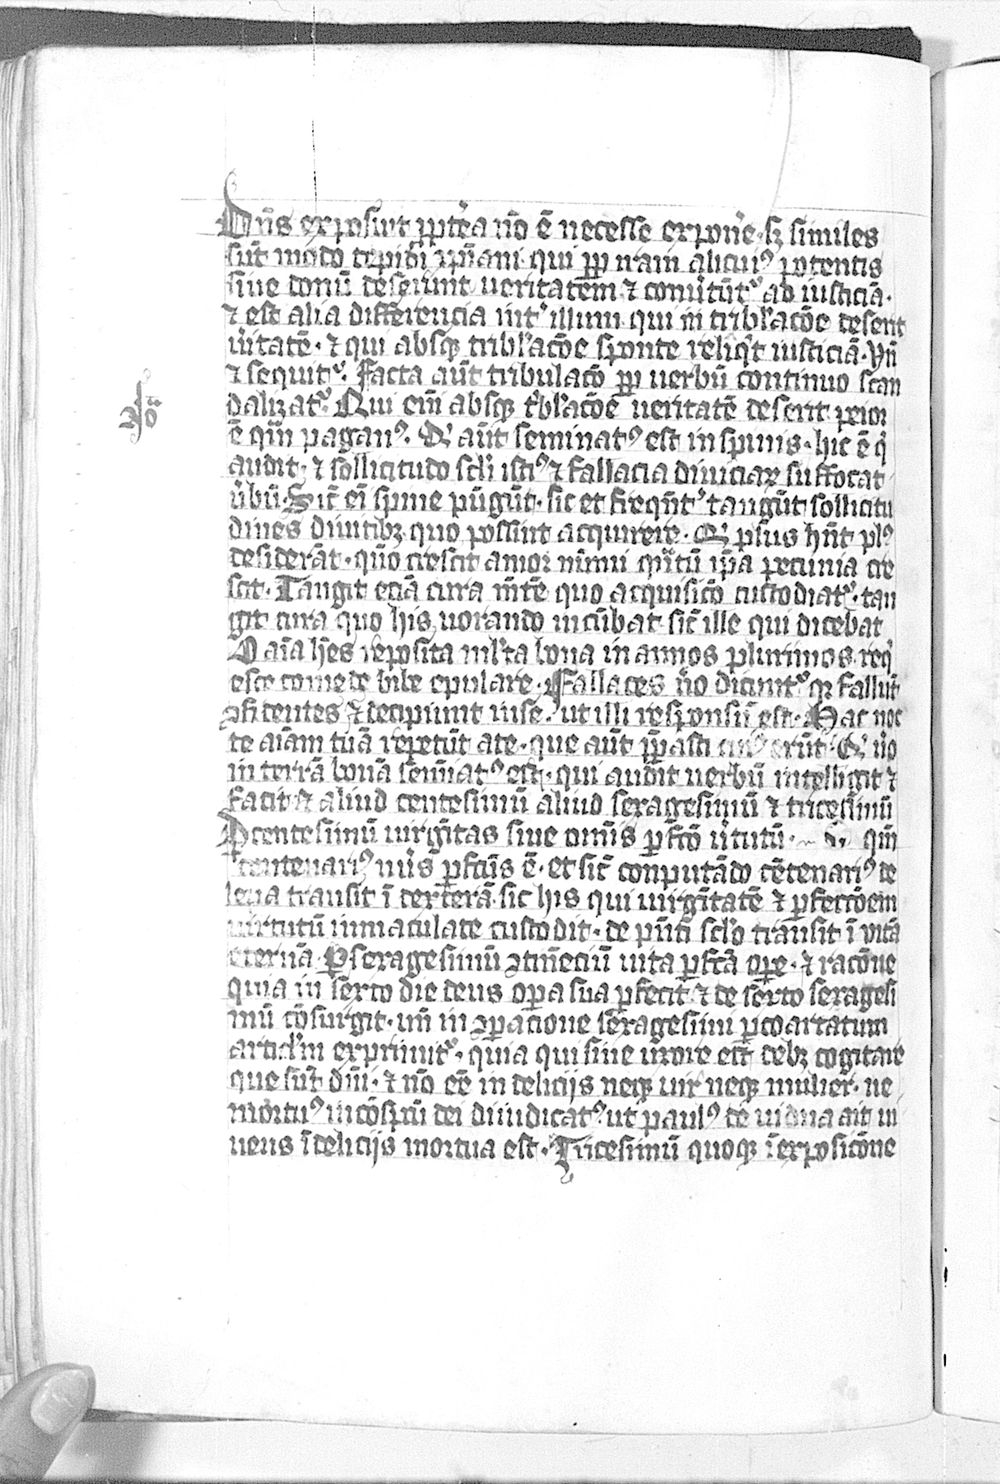 Dn̄s exposuit ꝓpt̾ea nō ē necesse expon̾e sꝫ similes
sūt modo tepidi xp̄iani qui ꝓꝑ iram alicuiꝰ potentis
siue donū deserunt ueritatem ⁊ conu̾tūt᷑ ad iusticiā·
⁊ est alia differencia int̾ illum qui in tribl'acōe deserit
u̾itatē · ⁊ qui absqꝫ tribl'acōe sponte reliq̾t iusticiā· Vn̄
⁊ sequit᷑. Facta aūt tribulacō ꝓꝑ uerbū continuo scan
dalizat᷑. Qui em̄ absqꝫ t̾bl'acōe ueritatē deserit peior
ē qm̄ paganꝰ. Qi aūt seminatꝰ est in spinis · hic ē qi
audit · ⁊ sollicitudo scl'i istiꝰ ⁊ fallacia diuiciaꝝ suffocat
u̾bū. Sic̄ em̄ spine pūgūt · sic et freqn̄t̾ tangūt sollicitu
dines diuitibꝫ quo possint acquirere · Qi pl̄us hn̄t plꝰ
desiderāt · qn̄o crescit amor nūmi qn̄tū ip̄a pecunia cre
scit · Tangit eciā cura mētē quo acquisitō custodiat᷑ · tan
git cura quo his uorando incūbat sic̄ ille qui dicebat
O aīa hn̄s reposita ml'ta bona in annos plurimos req̾
esce comede bibe epulare · Fallaces u̾o dicunt᷑ qꝛ fallūt
ꝯfidentes ⁊ decipiunt in se. ut illi responsū est · Hac noc
te aīam tuā repetūt a te · que aūt ꝑasti cuiꝰ erūt· Qi u̾o
in terrā bonā semīatꝰ est · qui audit uerbū intelligit ⁊
facit ⁊ aliud centesimū aliud sexagesimū ⁊ tricesimū
P centesimū uirgītas siue omīs ꝑfc̄o u̾tutū · qm̄
centenariꝰ nu̾s ꝑfcūs ē · et sic̄ conputādo cētenariꝰ de
leua transit ī dexterā sic his qui uirgītatē ⁊ ꝑfectōem
uirtutū inmaculate custodit · de pn̄ti scl'o transit ī uitā
eternā · P sexagesimū ꝯtinēciū uita ꝑfcā oꝑe · ⁊ racōne
quia in sexto die deus oꝑa sua ꝑfecit ⁊ de sexto sexagesi
mū cōsurgit · un̄ in ꝯꝑatione sexagesimi p coartatum
articl'm exprimit᷑ · quia qui sine uxore est debꝫ cogitare
que sūt dn̄i · ⁊ nō eē in delicijs neqꝫ uir neqꝫ mulier · ne
mortuꝰ in cōspcū dei diiudicat᷑ · ut paulꝰ de uidua ait ui
uens ī delicijs mortua est · Tricesimū quoqꝫ ī exposicōne